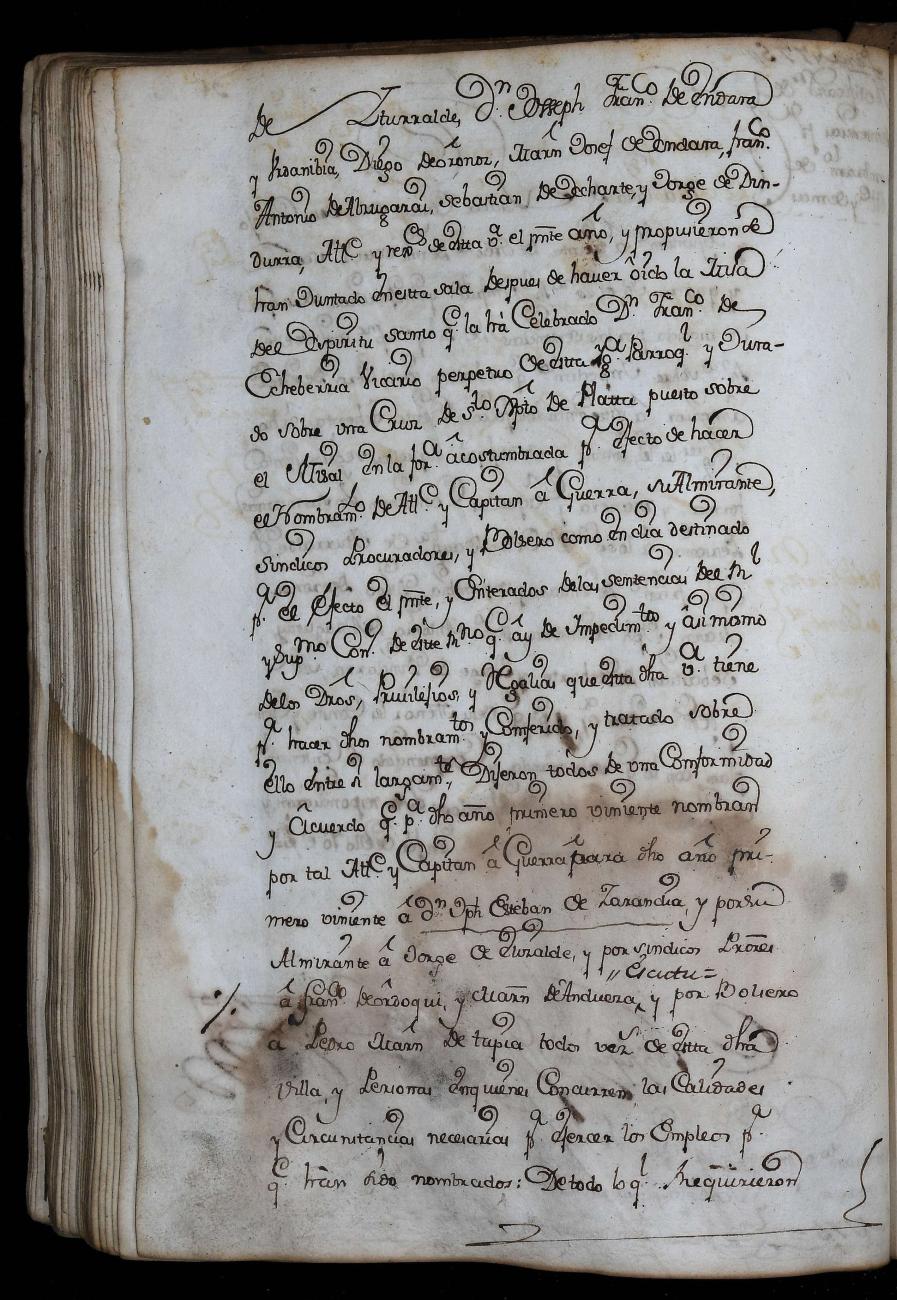 de Yturralde, Dn. Joseph Franco. de endara
y Yrdanibia, Diego de oronoz, Martn Josef de endara, franco.
Antonio de Abrugarai, sebastian de ocharte, y Jorge de Din-
durra, Allc y rexs de esta va. el pnte año, y propusieron se
hran Juntado en esta sala despues de haver oido la Misa
del Espiritu santo q la ha celebrado Dn Franco. de
Echeberria Vicario perpetuo de esta Parroql. y Jura-
do sobre una Cruz de Sto Xpto de Platta puesto sobre
el Misal en la fora acostumbrada pa. efecto de hacer
el Nombramto. de Allc. y Capitan â Guerra, su Almirante,
sindicos Procuradores, y Bolsero como en dia destinado
pa. el efecto el pnte, y Enterados de las sentencias del Rl
y Supmo Con. de este Rno q. ây de Impedimtos y âsi mismo
de los Dros, Privilegios, y Regalias que esta dha va. tiene
pa. hacer dhos nombramtos y Conferido, y tratado sobre
ello entre si largamte. Dijeron todos de una Conformidad
y Acuerdo q. pa. dho año primero viniente nombran
por tal Allc. y Capitan â Guerra para dho año pri-
mero viniente â dn Jph Esteban de Zarandia y por su
Almirante â Jorge de Yturalde, y por sindicos Prores
"Escutu=
â franco. de ordoqui, y Martn de Andueza, y por Bolsero
a Pedro Martn de tapia todos vezs de esta dha
Villa, y Personas en quienes Concurren las Calidades
y Circunstancias necesarias pa. ejercer los Empleos pa.
q. hran sido nombrados: De todo lo ql. Requirieron